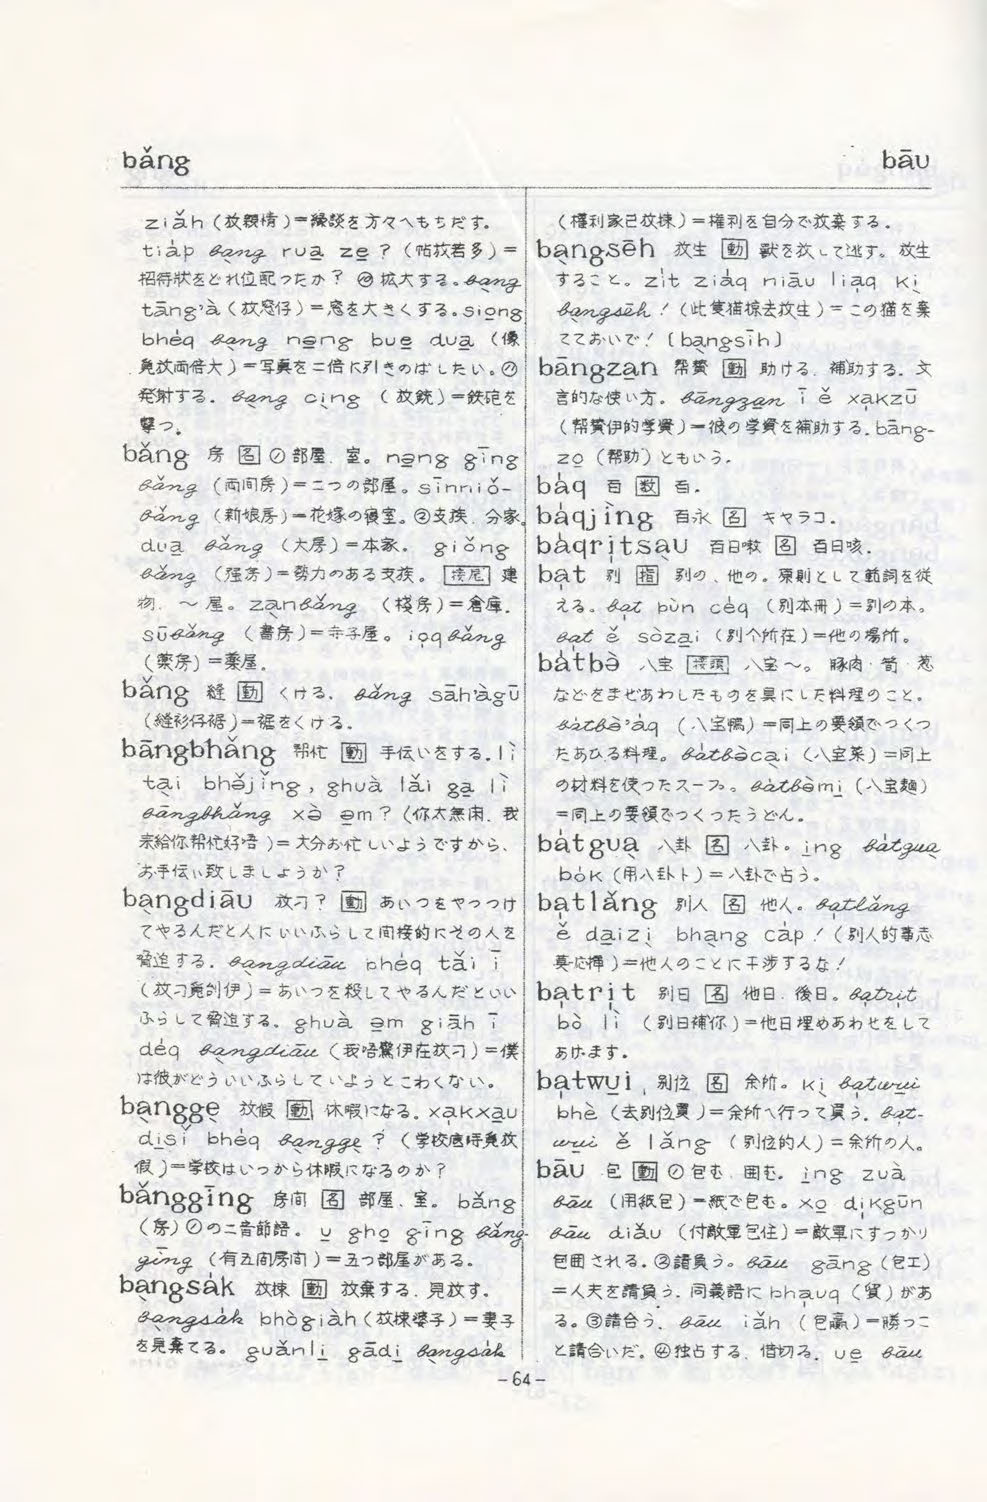 băng
bāu
ziăh (放親情)=縁談を方々へもちだす。
tia̍p ba̱ng rua̱ ze̱ ? (帖放若多)=
招待状をどれ位配ったか? ㋺拡大する。ba̱ng
tāng'à (放窓仔)=窓を大きくする。siọng
bhéq ba̱ng nọng bue̱ dua̱ (像
放両倍大)=写真を二倍に引きのばしたい。
発射する。ba̱ng cìng (放銃)=鉄砲を
撃つ。
băng 房 名 ①部屋、室。nọng gīng
băng (両间房)=二つの部屋。sīnniŏ-
băng (新娘房)=花嫁の寝室。②支族、分家。
dua̱ băng (大房)=本家。 giŏng
băng (强房)=勢力のある支族。 接尾 建
物、~屋。za̱nbăng (棧房)=倉庫。
sūbăng (書房)=寺子屋。iọqbăng
(薬房)=薬屋。
băng 縫 動 くける。băng sāh'àgū
(縫衫仔裾)=裾をくける。
bāngbhăng 帮忙 動 手伝いをする。lì
ta̱i bhăjĭng, ghuà lăi ga̱ lì
bāngbhăng xə̀ ə̱m? (你太無闲、我
来給你帮忙好唔)=大分お忙しいようですから、
お手伝い致しましょうか?
ba̱ngdiāu 放刁? 動 あいつをやっつけ
てやるんだと人にいいふらして间接的にその人を
脅迫する。ba̱ngdiāu bhéq tăi ī
(放刁 刣伊)=あいつを殺してやるんだといい
ふらして脅迫する。ghuà ə̱m giāh ī
déq ba̱ngdiāu (我唔驚伊在放刁)=僕
は彼がどういいふらしていようとこわくない。
ba̱ngge̱ 放假 動 休暇になる。xa̱kxa̱u
di̱sĭ bhéq ba̱ngge̱ ? (学校底時 放
假)=学校はいつから休暇になるのか?
bănggīng 房间 名 部屋、室。băng
(房)①の二音節語。u̱ gho̱ gīng băng-
gīng (有五间房间)=五つ部屋がある。
ba̱ngsa̍k 放捒 動 放棄する、見放す。
ba̱ngsa̍k bhògiàh (放捒婆子)=妻子
を見棄てる。guănli̱ gādi̱ ba̱ngsa̍k
(權利家己放捒)=権利を自分で放棄する。
ba̱ngsēh 放生 動 獣を放して逃す。放生
すること。zi̍t ziáq niāu liạq ki̱
ba̱ngsēh ! (此隻猫掠去放生)=この猫を棄
てておいで! 〔ba̱ngsīh〕
bāngza̱n 帮賛 動 助ける、補助する。文
言的な使い方。bāngza̱n ī ĕ xa̱kzū
(帮賛伊的学資)=彼の学資を補助する。bāng-
zo̱ (帮助)ともいう。
báq 百 数 百。
báqjìng 百永 名 キャラコ。
báqrịtsa̱u 百日嗽 名 百日咳。
bạt 别 指 别の、他の。原則として範詞を従
える。bạt bùn céq (别本冊)=别の本。
bạt ĕ sòza̱i (别个所在)=他の場所。
bátbə̀ 八宝 接頭 八宝~。豚肉・筍・葱
などをまぜあわしたものを具にした料理のこと。
bátbə̀'áq (八宝鴨)=同上の要領でつくっ
たあひる料理。bátbə̀ca̱i (八宝菜)=同上
の材料を使ったスープ。bátbə̀mi̱ (八宝麵)
=同上の要領でつくったうどん。
bátgua̱ 八卦 名 八卦。i̱ng bátgua̱
bók (用八卦卜)=八卦で占う。
bạtlăng 别人 名 他人。bạtlăng
ĕ da̱izi̱ bha̱ng cáp ! (别人的事志
莫応揷)=他人のことに干渉するな!
bạtrịt 别日 名 他日、後日。bạtrịt
bò lì (别日補你)=他日埋めあわせをして
あげます。
bạtwui̱ 别位 名 余所。ki̱ bạtwui̱
bhè (去别位買)=余所へ行って買う。bạt-
wui̱ ĕ lăng (别位的人)=余所の人。
bāu 包 動 ①包む、囲む。i̱ng zuà
bāu (用紙包)=紙で包む。xo̱ dịkgūn
bāu diău (付敵軍包住)=敵軍にすっかり
包囲される。②請負う。bāu gāng (包工)
=人夫を請負う。同義語に bha̱uq (貿)があ
る。③請合う。bāu iăh (包贏)=勝っこ
と請合いだ。④独占する、借切る。ue̱ bāu
-64-